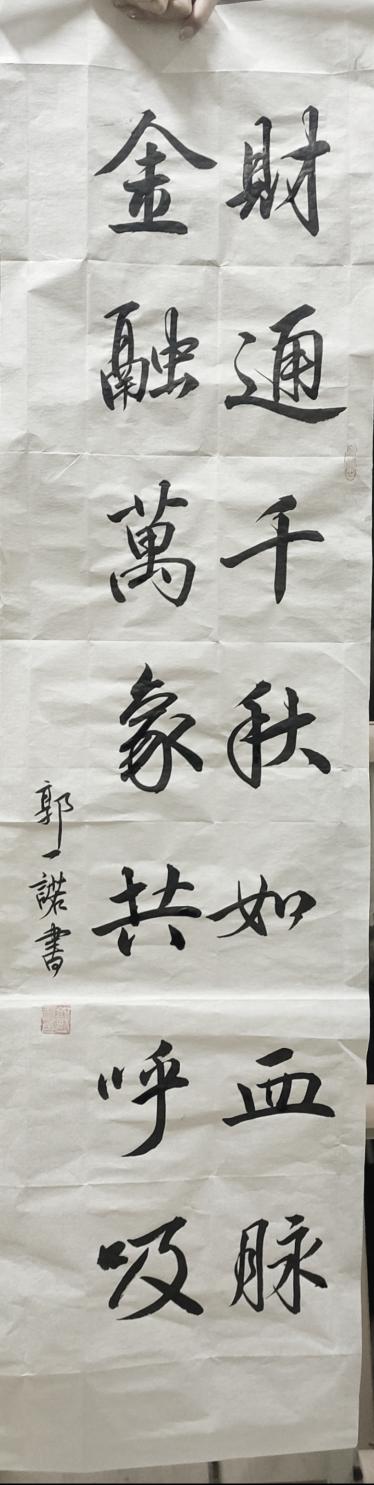 財通千秋如血脉
金融萬象共呼吸
郭一諾書